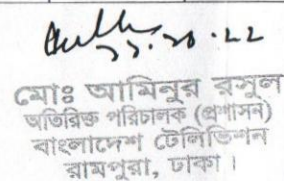 ২১.১০.২২
মোঃ আমিনুর রসুল
অতিরিক্ত পরিচালক (প্রশাসন)
বাংলাদেশ টেলিভিশন
রামপুরা, ঢাকা।